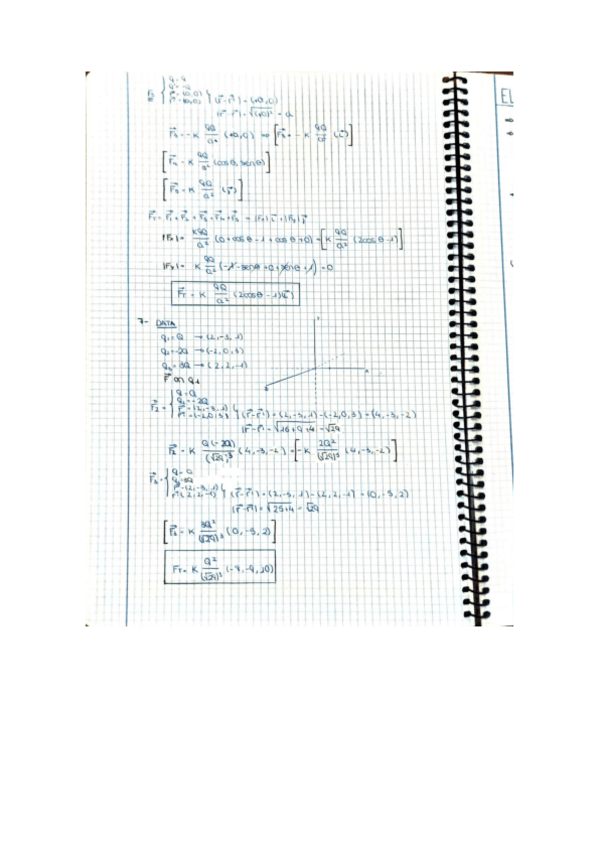 (r⃗-r⃗') = (+a,0)
|r⃗-r⃗'| = √(+a)² = a
F⃗₃ = -K qQ/a² (+a,0) ⇒ [F⃗₃ = -K qQ/a² (i⃗)]
[F⃗₄ = K qQ/a² (cosθ, senθ)]
[F⃗₅ = K qQ/a² (j⃗)]
F⃗T = F⃗₁ + F⃗₂ + F⃗₃ + F⃗₄ + F⃗₅ = |Fx| i⃗ + |Fy| j⃗
|Fx| = KqQ/a² (0 + cosθ - 1 + cosθ + 0) = [K qQ/a² (2cosθ - 1)]
|Fy| = K qQ/a² (-1 - senθ + 0 + senθ + 1) = 0
F⃗T = K qQ/a² (2cosθ - 1)(i⃗)
7- DATA
q₁ = Q → (2, -3, 1)
q₂ = -2Q → (-2, 0, 3)
q₃ = 3Q → (2, 2, -1)
F⃗ on q₁
q = Q
q₂ = -2Q
F⃗₂ = { r⃗ = (2, -3, 1)
r⃗' = (-2, 0, 3) } (r⃗-r⃗') = (2, -3, 1) - (-2, 0, 3) = (4, -3, -2)
|r⃗-r⃗'| = √16+9+4 = √29
F⃗₂ = K Q(-2Q)/(√29)³ (4, -3, -2) = [-K 2Q²/(√29)³ (4, -3, -2)]
F⃗₃ = { r⃗ = (2, -3, 1)
r⃗' = (2, 2, -1) } (r⃗-r⃗') = (2, -3, 1) - (2, 2, -1) = (0, -5, 2)
|r⃗-r⃗'| = √25+4 = √29
[F⃗₃ = K 3Q²/(√29)³ (0, -5, 2)]
FT = K Q²/(√29)³ (-8, -9, 10)
EL